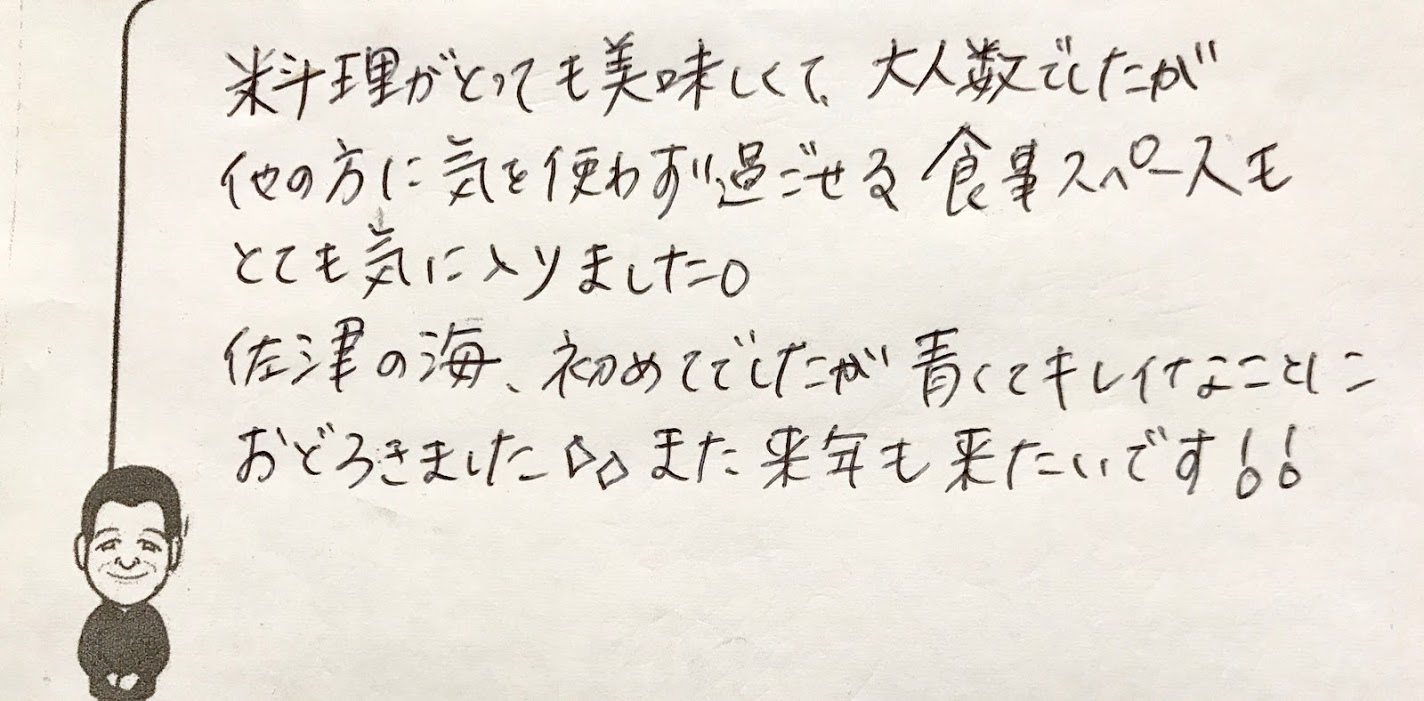 料理がとっても美味しくて、大人数でしたが
他の方に気を使わず過ごせる食事スペースも
とても気に入りました。
佐津の海、初めてでしたが青くてキレイなことに
おどろきました☆☆また来年も来たいです!!